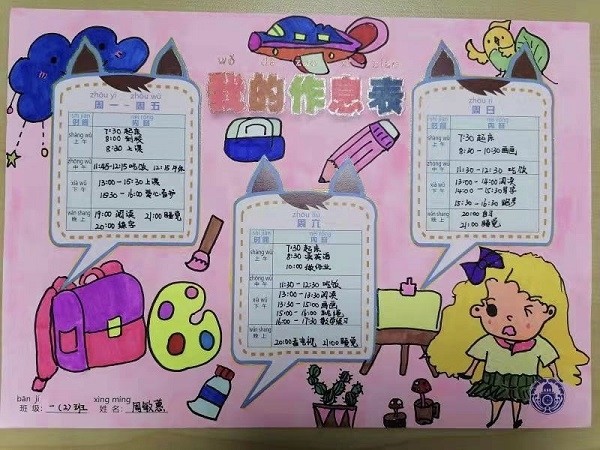 wǒ de zuò xī biǎo
我的作息表
zhōu yī - zhōu wǔ
周一~周五
shí jiān nèi róng
时间 内容
shàng wǔ
上午
7:30 起床
8:00 到校
8:30 上课
zhōng wǔ
中午
11:45-12:15 吃饭 12:15 午休
xià wǔ
下午
13:00-15:30 上课
15:30-16:00
wǎn shang
晚上
19:00 阅读 21:00 睡觉
20:00 练字
zhōu liù
周六
shí jiān nèi róng
时间 内容
shàng wǔ
上午
7:30 起床
8:30 读英语
10:00 做作业
zhōng wǔ
中午
11:30-12:30 吃饭
xià wǔ
下午
13:00-13:30 阅读
13:30-15:00 画画
15:00-16:00 跳绳
16:00-17:30 数学练习
wǎn shang
晚上
20:00 看电视 21:00 睡觉
zhōu rì
周日
shí jiān nèi róng
时间 内容
shàng wǔ
上午
7:30 起床
8:30-10:30 画画
zhōng wǔ
中午
11:30-12:30 吃饭
xià wǔ
下午
13:00-14:00 阅读
14:00-15:30
15:30-16:30 跑步
wǎn shang
晚上
20:00
21:00 睡觉
bān jí xìng míng
班级: 一(2)班 姓名: 周敏蕙